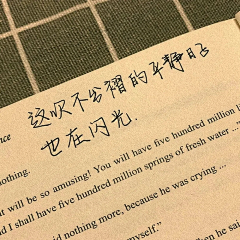 这吹不出褶的平静日子
也在闪光.
nce
nothing.
t will be so amusing! You will have five hundred million l
d I shall have five hundred million springs of fresh water ..."
id nothing more, because he was crying ...
myself."
hen he said